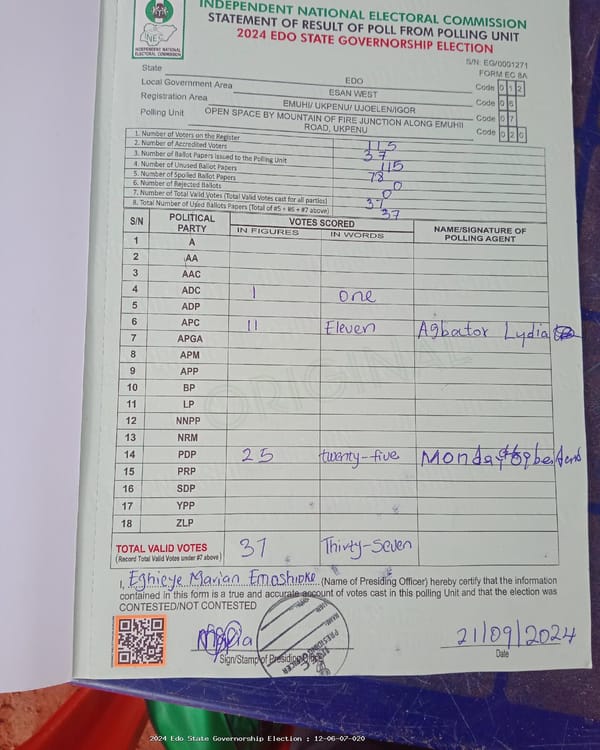 INDEPENDENT NATIONAL ELECTORAL COMMISSION
STATEMENT OF RESULT OF POLL FROM POLLING UNIT
2024 EDO STATE GOVERNORSHIP ELECTION
INEC
INDEPENDENT NATIONAL ELECTORAL COMMISSION
S/N: EG/0001271
FORM EC 8A
State EDO Code 0 1 2
Local Government Area ESAN WEST Code 0 6
Registration Area EMUHI/ UKPENU/ UJOELEN/IGOR Code 0 7
Polling Unit OPEN SPACE BY MOUNTAIN OF FIRE JUNCTION ALONG EMUHII ROAD, UKPENU Code 0 2 0
1. Number of Voters on the Register 115
2. Number of Accredited Voters 37
3. Number of Ballot Papers Issued to the Polling Unit 115
4. Number of Unused Ballot Papers 78
5. Number of Spoiled Ballot Papers 0
6. Number of Rejected Ballots 0
7. Number of Total Valid Votes (Total Valid Votes cast for all parties) 37
8. Total Number of Used Ballots Papers (Total of #5 + #6 + #7 above) 37
S/N POLITICAL PARTY VOTES SCORED NAME/SIGNATURE OF POLLING AGENT
IN FIGURES IN WORDS
1 A
2 AA
3 AAC
4 ADC 1 one
5 ADP
6 APC 11 Eleven Agbator Lydia
7 APGA
8 APM
9 APP
10 BP
11 LP
12 NNPP
13 NRM
14 PDP 25 twenty-five Monday
15 PRP
16 SDP
17 YPP
18 ZLP
ORIGINAL
TOTAL VALID VOTES 37 Thirty-Seven
(Record Total Valid Votes under #7 above)
I, Eghieye Marian Emoshioke (Name of Presiding Officer) hereby certify that the information
contained in this form is a true and accurate account of votes cast in this polling Unit and that the election was
CONTESTED/NOT CONTESTED
21/09/2024
Sign/Stamp of Presiding Officer Date
2024 Edo State Governorship Election : 12-06-07-020